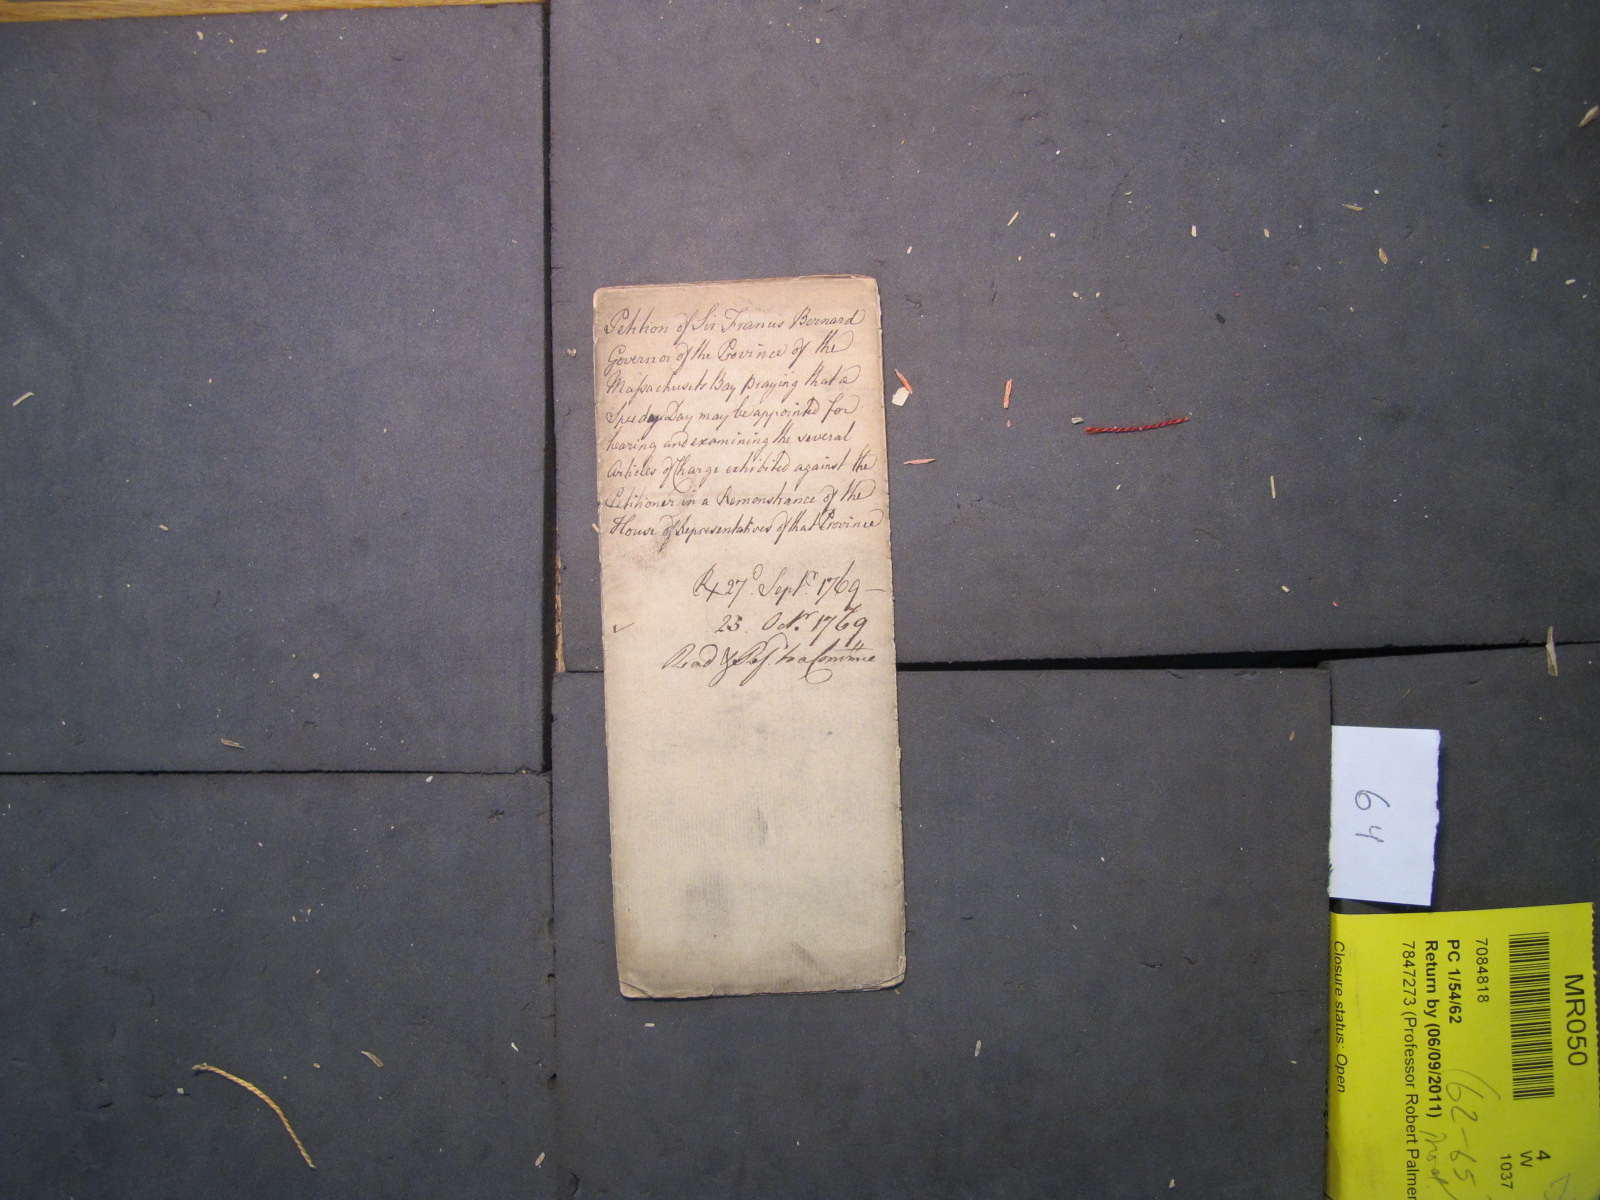 Petition of Sir Francis Bernard
Governor of the Province of the
Massachusets Bay praying that a
Speedy Day may be appointed for
hearing and examining the several
Articles of Charge exhibited against the
Petitioner in a Remonstrance of the
House of Representatives of that Province
Rx 27º Septr. 1769 —
25 Octr. 1769
Read & Ref. to a Committee
64
MR050
4
W
1037
7084818
PC 1/54/62
Return by (06/09/2011)
7847273 (Professor Robert Palmer
Closure status: Open
62-65